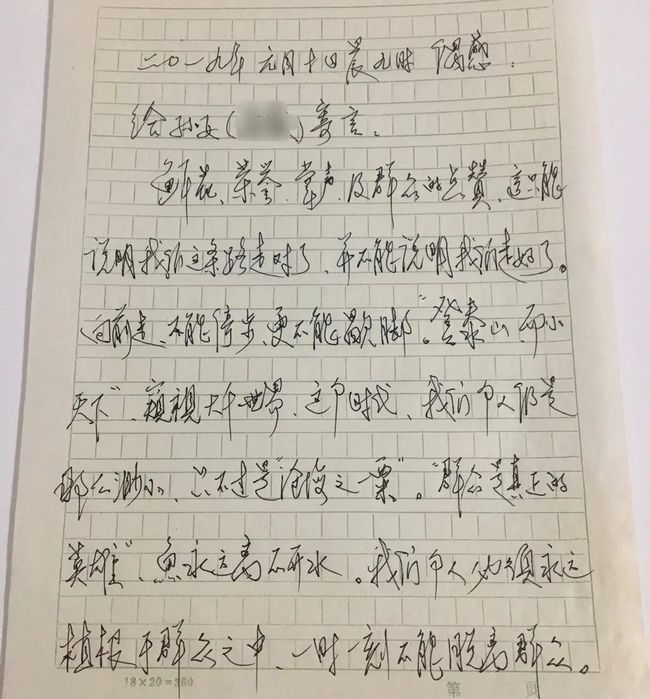 二〇一九年元月十四晨九时 偶感:
给孙女( )寄言:
鲜花、荣誉、掌声、及群众的点赞、这只能
说明我们这条路走对了、并不能说明我们走好了。
向前走、不能停步、更不能歇脚。“登泰山、而小
天下”、窥视大千世界、这个时代、我们个人仍是
那么渺小、只不过是“沧海之一粟”。“群众是真正的
英雄”、鱼永远离不开水。我们个人必须永远
植根于群众之中、一时一刻不能脱离群众。
18×20=360
第 页